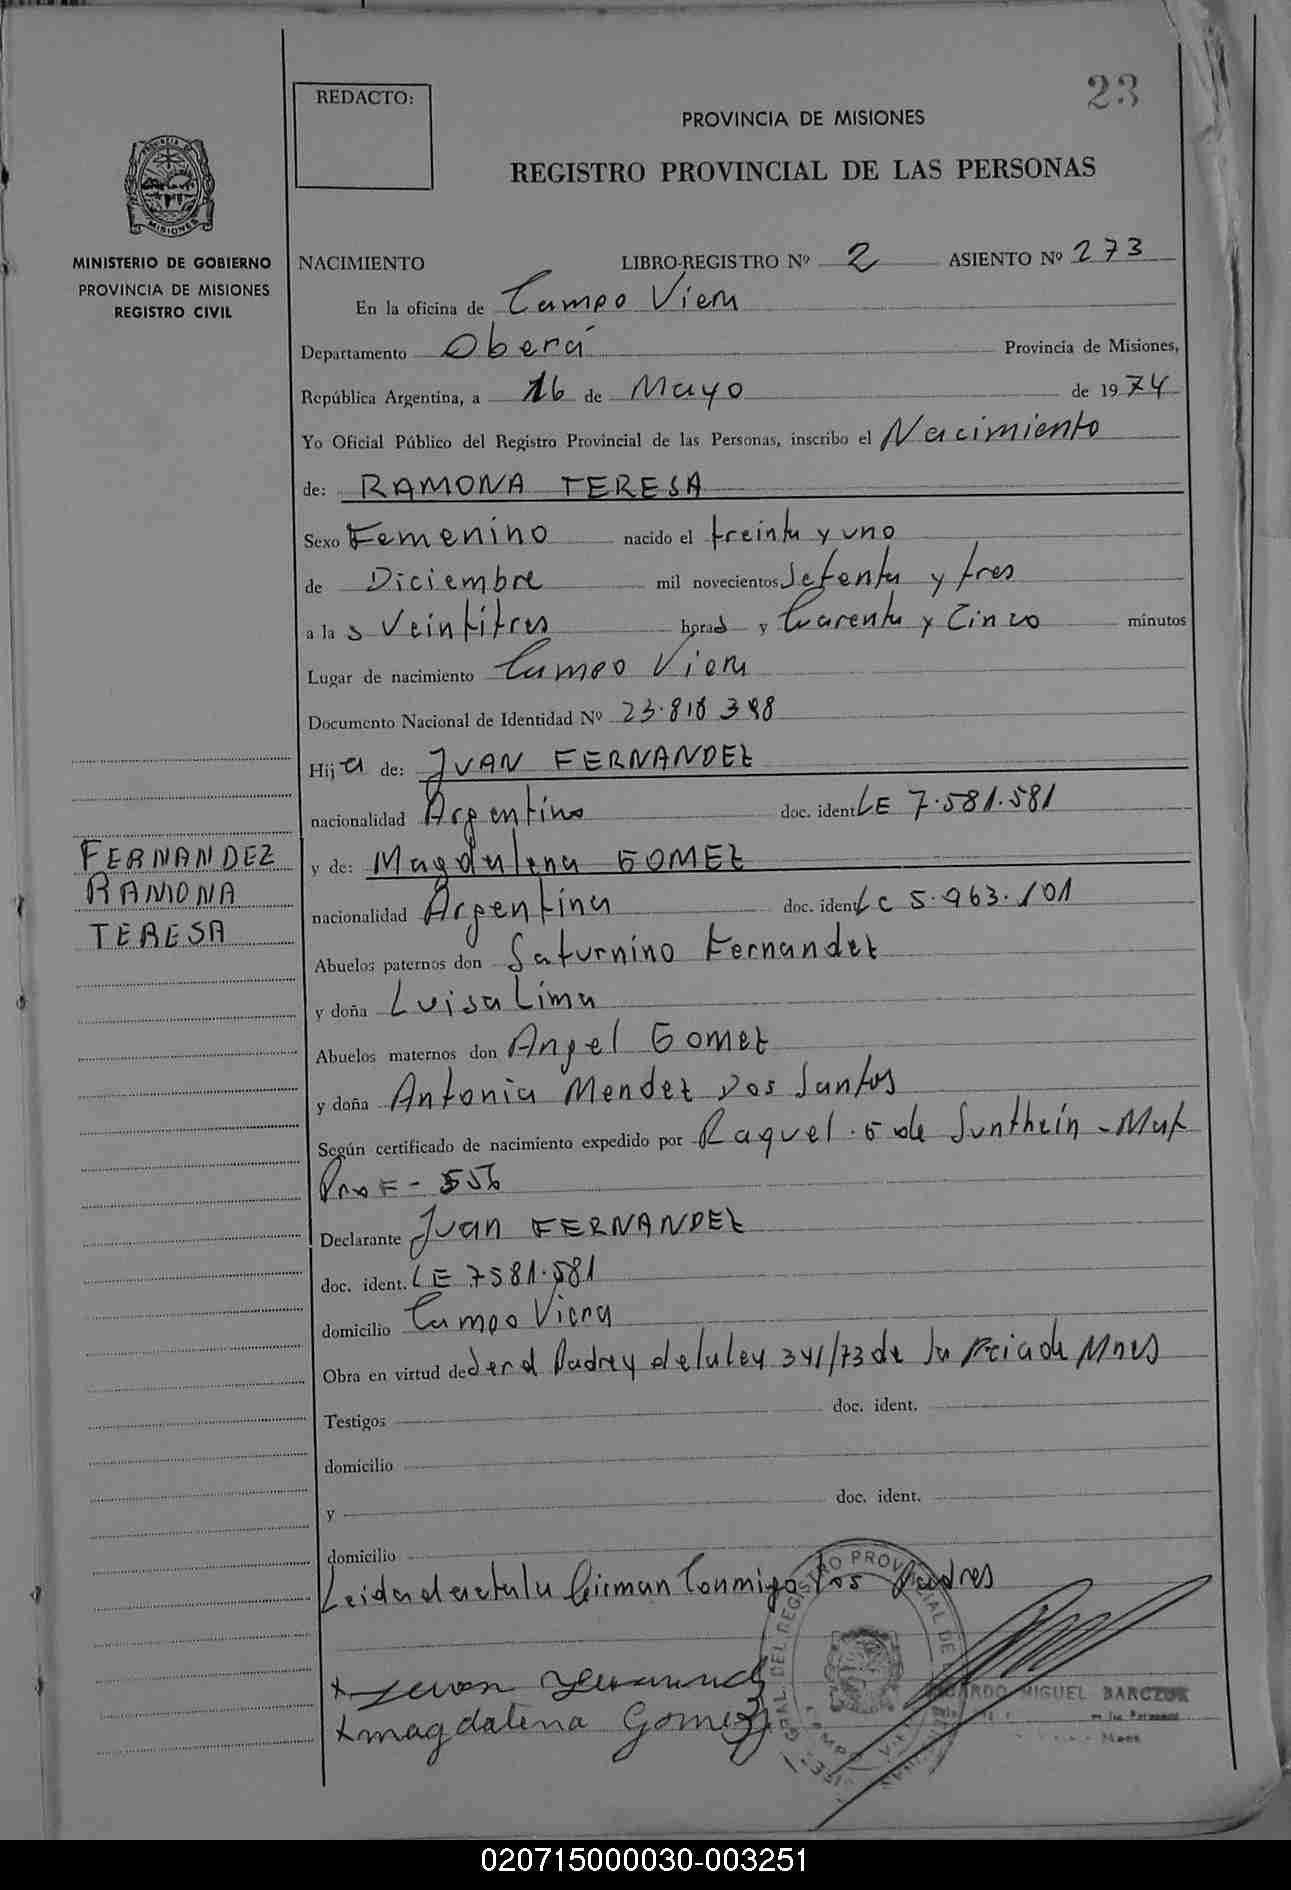 23
REDACTO:
PROVINCIA DE MISIONES
REGISTRO PROVINCIAL DE LAS PERSONAS
MISIONES
MINISTERIO DE GOBIERNO
PROVINCIA DE MISIONES
REGISTRO CIVIL
NACIMIENTO LIBRO-REGISTRO Nº 2 ASIENTO Nº 273
En la oficina de Campo Viera
Departamento Oberá Provincia de Misiones,
República Argentina, a 16 de Mayo de 1974
Yo Oficial Público del Registro Provincial de las Personas, inscribo el Nacimiento
de: RAMONA TERESA
Sexo Femenino nacido el treinta y uno
de Diciembre mil novecientos setenta y tres
a las Veintitres horas y Cuarenta y Cinco minutos
Lugar de nacimiento Campo Viera
Documento Nacional de Identidad Nº 23.818
Hija de: JUAN FERNANDEZ
nacionalidad Argentino doc. ident LE 7.581.581
FERNANDEZ
RAMONA
TERESA
y de: Magdalena GOMEZ
nacionalidad Argentina doc. ident LC 5.963.101
Abuelos paternos don Saturnino Fernandez
y doña Luisa Lima
Abuelos maternos don Angel Gomez
y doña Antonia Mendez Dos Santos
Según certificado de nacimiento expedido por Raquel . G de Santhein - Mat
Prof - 556
Declarante Juan FERNANDEZ
doc. ident. LE 7581.581
domicilio Campo Viera
Obra en virtud de ser el Padre y de la ley 341/73 de la Pcia de Mnes
Testigos doc. ident.
domicilio
y doc. ident.
domicilio
Leida el acta la firman Conmigo los Padres
x Juan Fernandez
x magdalena Gomez
GRAL. DEL REGISTRO PROVINCIAL DE
MIGUEL BARCZUK
020715000030-003251